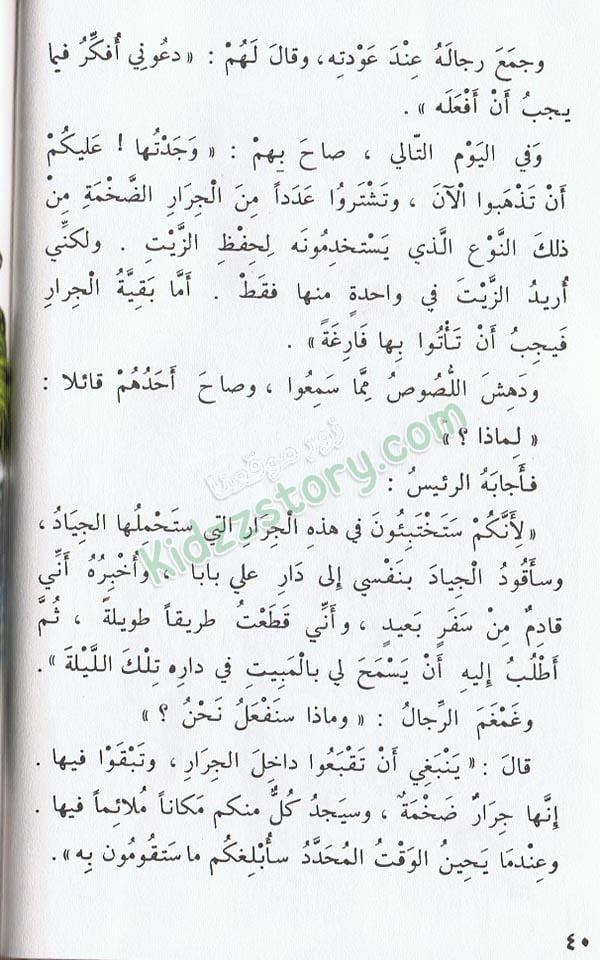 وجمَعَ رجالَهُ عِنْدَ عَوْدتِه، وقالَ لَهُمْ : « دعُوني أُفكِّرُ فيما
يجبُ أَنْ أَفْعَلَه » .
وَفي اليَوْم التّالي ، صاحَ بِهمْ : « وَجَدْتُها ! عَليكُمْ
أَنْ تَذْهَبوا الْآنَ ، وتَشْتَروُا عَدَداً مِنَ الْجِرَارِ الضَّخْمَةِ مِنْ
ذلكَ النَّوْعِ الَّذي يَسْتَخدِمُونَه لِحِفْظِ الزَّيْتِ . ولكنِّي
أُريدُ الزَّيْتَ في واحدةٍ منها فقَطْ . أَمَّا بَقيَّةُ الْجِرارِ
فَيجِبُ أَنْ تَأْتُوا بِها فَارِغَةً » .
ودَهِشَ اللُّصُوصُ مِمَّا سَمِعُوا ، وصاحَ أَحَدُهُمْ قائلا :
« لِماذا ؟ »
فأَجابَهُ الرئيسُ :
«لِأَنَّكُمْ سَتَخْتَبِئُونَ في هذهِ الْجِرَارِ التي ستَحْمِلُها الجِيَادُ ،
وسأَقُودُ الْجيادَ بنَفْسي إلى دَارِ علي بابا ، وأُخْبِرُهُ أَنِّي
قادِمٌ مِنْ سَفَرٍ بَعيدٍ ، وأَنِّي قَطَعْتُ طريقاً طويلةً ، ثُمَّ
أَطْلُبُ إليهِ أَنْ يَسْمَحَ لي بالْمَبيتِ في دارِه تِلْكَ اللَّيْلةَ » .
وغَمْغَمَ الرِّجالُ : « وماذا سنَفْعَلُ نَحْنُ ؟ »
قالَ : « يَنْبَغي أَنْ تَقْبَعُوا داخِلَ الجِرارِ ، وتَبْقَوْا فيها .
إنَّها جِرارٌ ضَخْمَةٌ ، وسيَجدُ كُلٌّ منكم مَكاناً مُلائِماً فيها .
وعِنْدمَا يَحينُ الوَقْتُ المُحَدَّدُ سأُبْلِغكُم ما ستَقُومُون بِه » .
زور موقعنا
Kidzzstory.com
٤٠